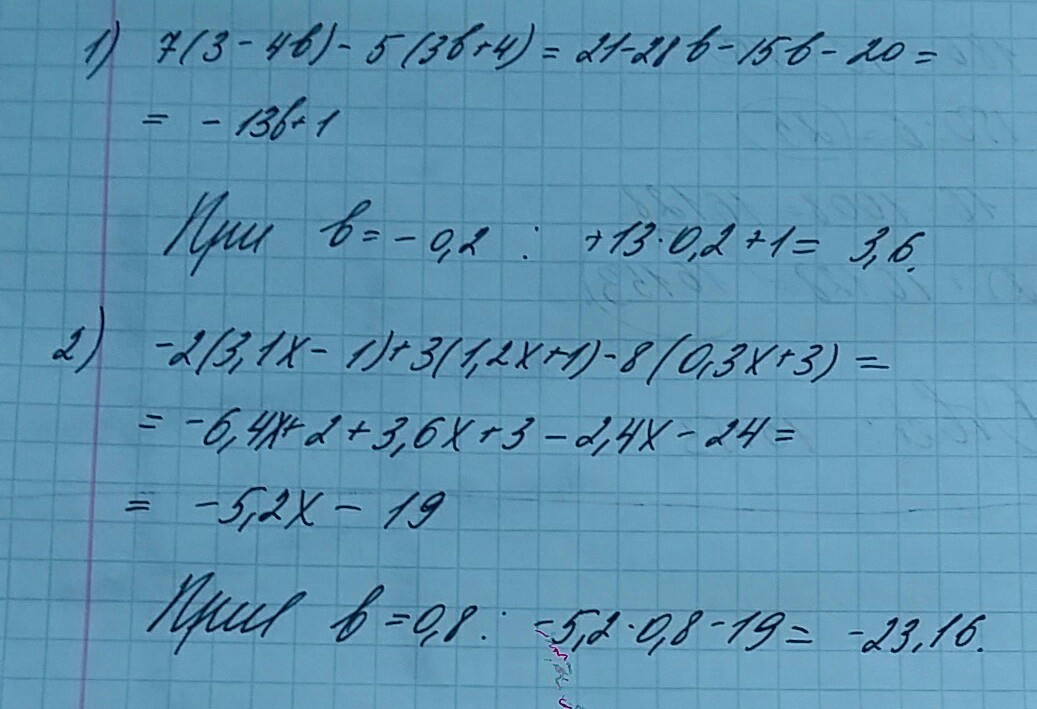 1) 7(3 - 4в) - 5(3в+4) = 21-28в-15в-20 =
= -13в+1
При в = -0,2 : +13·0,2+1 = 3,6.
2) -2(3,1х - 1)+3(1,2х+1)-8(0,3х+3) =
= -6,4х+2+3,6х+3-2,4х-24 =
= -5,2х - 19
При в = 0,8 : -5,2·0,8-19 = -23,16.